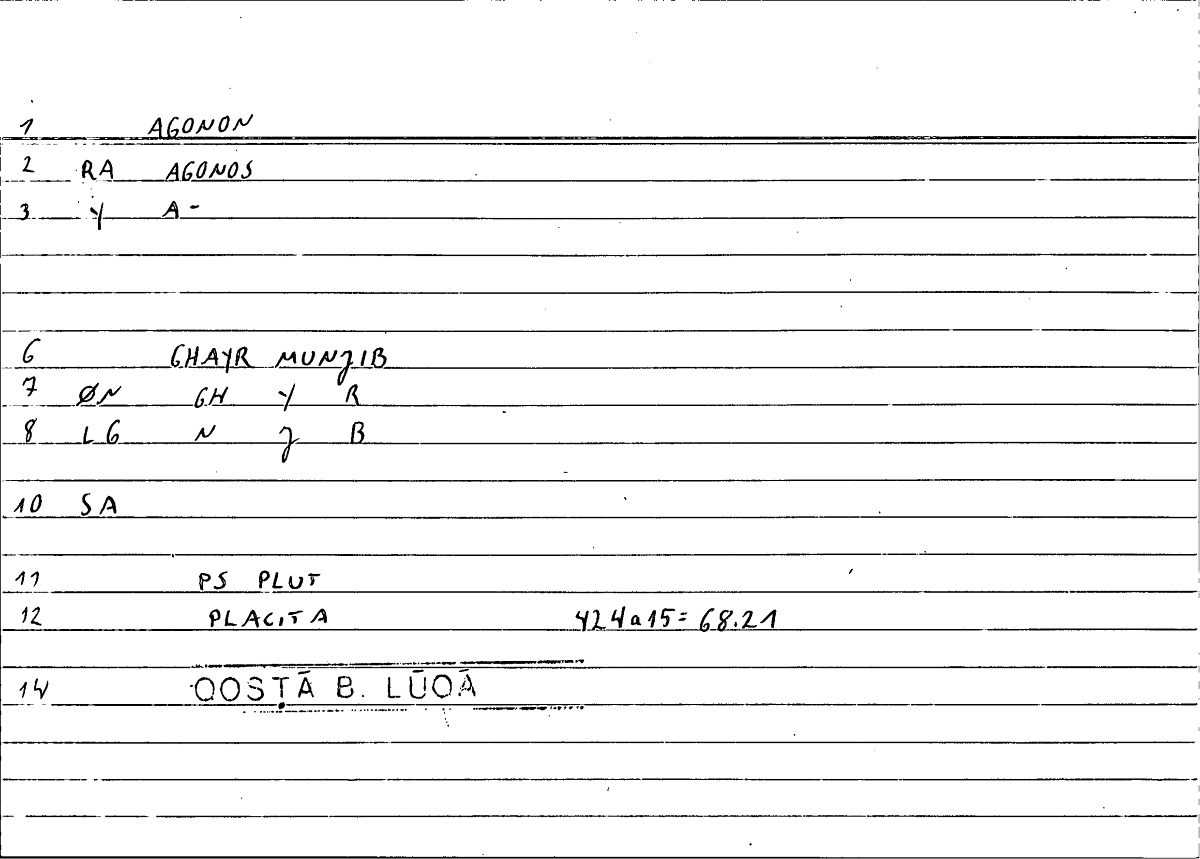 1 AGONON
2 RA AGONOS
3 Y A-
6 GHAYR MUNJIB
7 ØN GH Y R
8 LG N J B
10 SA
11 PS PLUT
12 PLACITA 424a15= 68.21
14 QOSṬĀ B. LŪQĀ